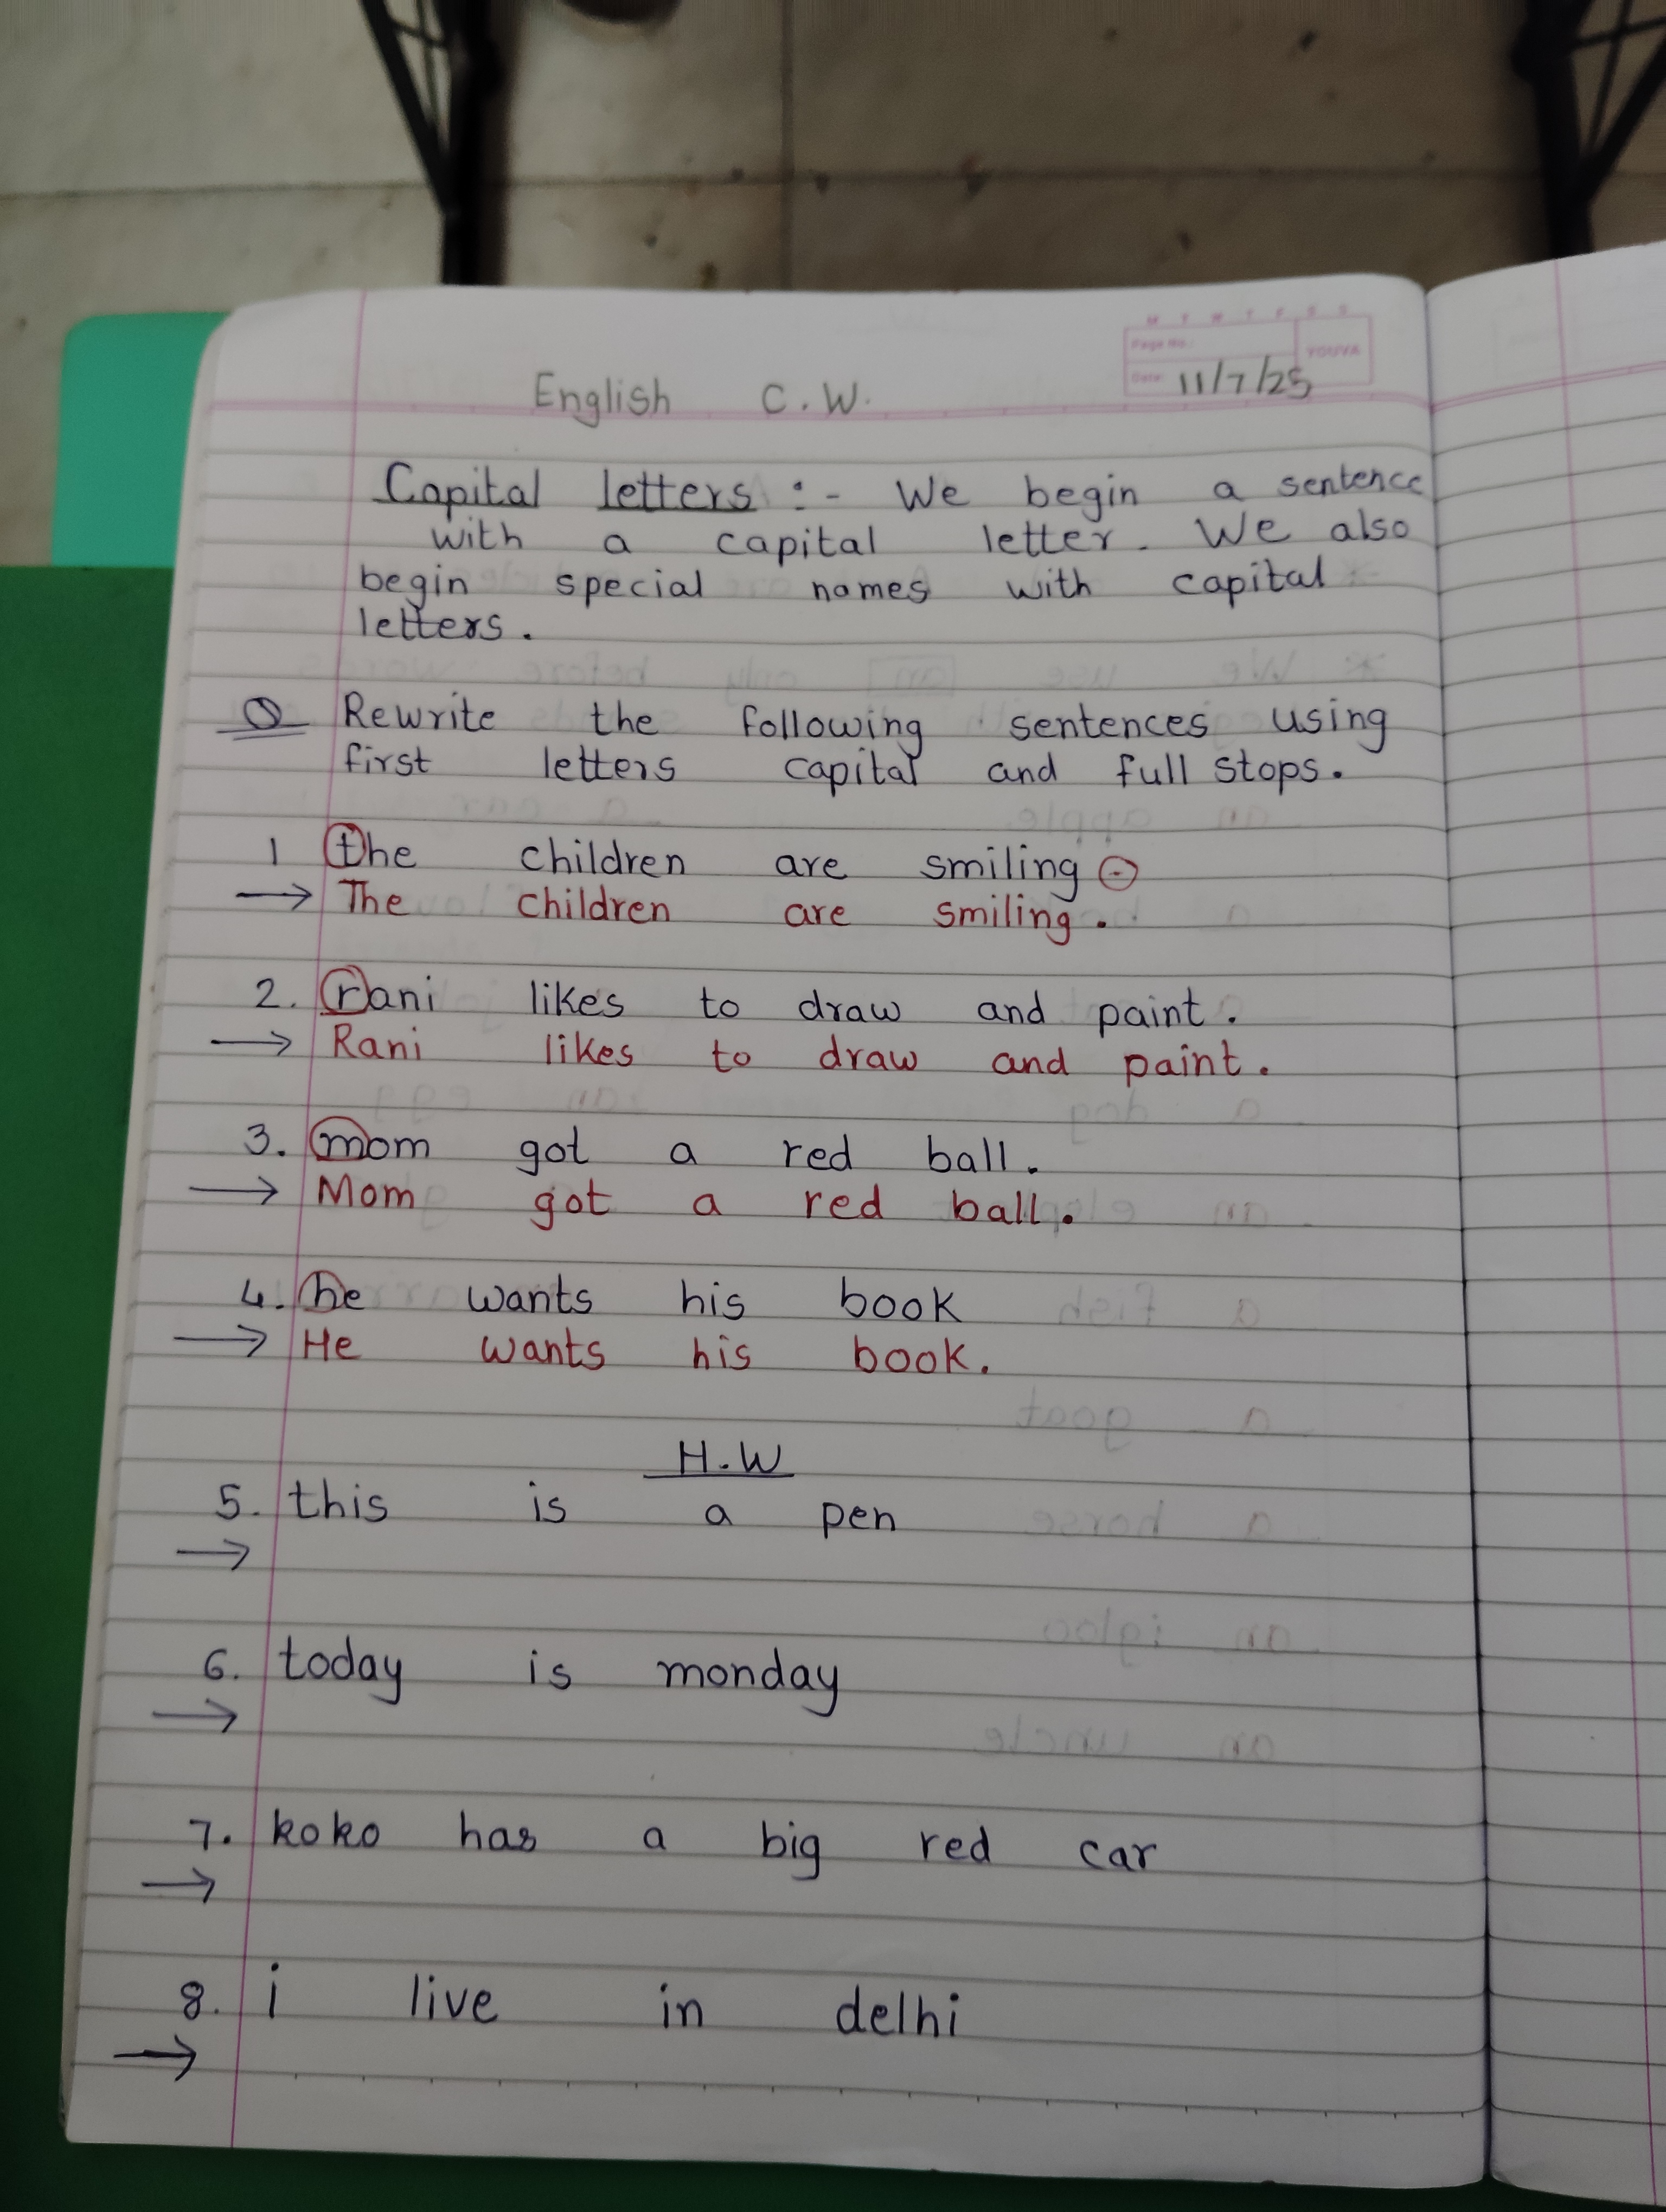 M T W T F S S
Page No.:
YOUVA
Date: 11/7/25
English C.W.
Capital letters :- We begin a sentence
with a capital letter. We also
begin special names with capital
letters.
Q Rewrite the following sentences using
first letters capital and full stops.
1 the children are smiling
→ The children are smiling.
2. rani likes to draw and paint.
→ Rani likes to draw and paint.
3. mom got a red ball.
→ Mom got a red ball.
4. he wants his book
→ He wants his book.
H.W
5. this is a pen
→
6. today is monday
→
7. koko has a big red car
→
8. i live in delhi
→